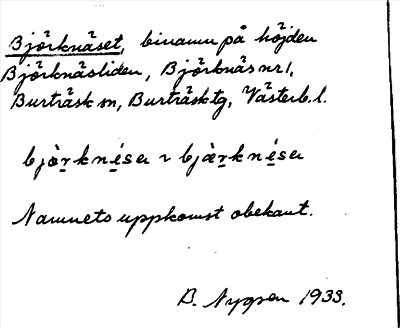 Björknäset, binamn på höjden
Björknäsliden, Björknäs nr 1,
Burträsk sn, Burträsk tg, Västerb. l.
bjò̱rkné̱seṛ ~ bjæ̀rkné̱seṛ
Namnets uppkomst obekant.
B. Nygren 1933.